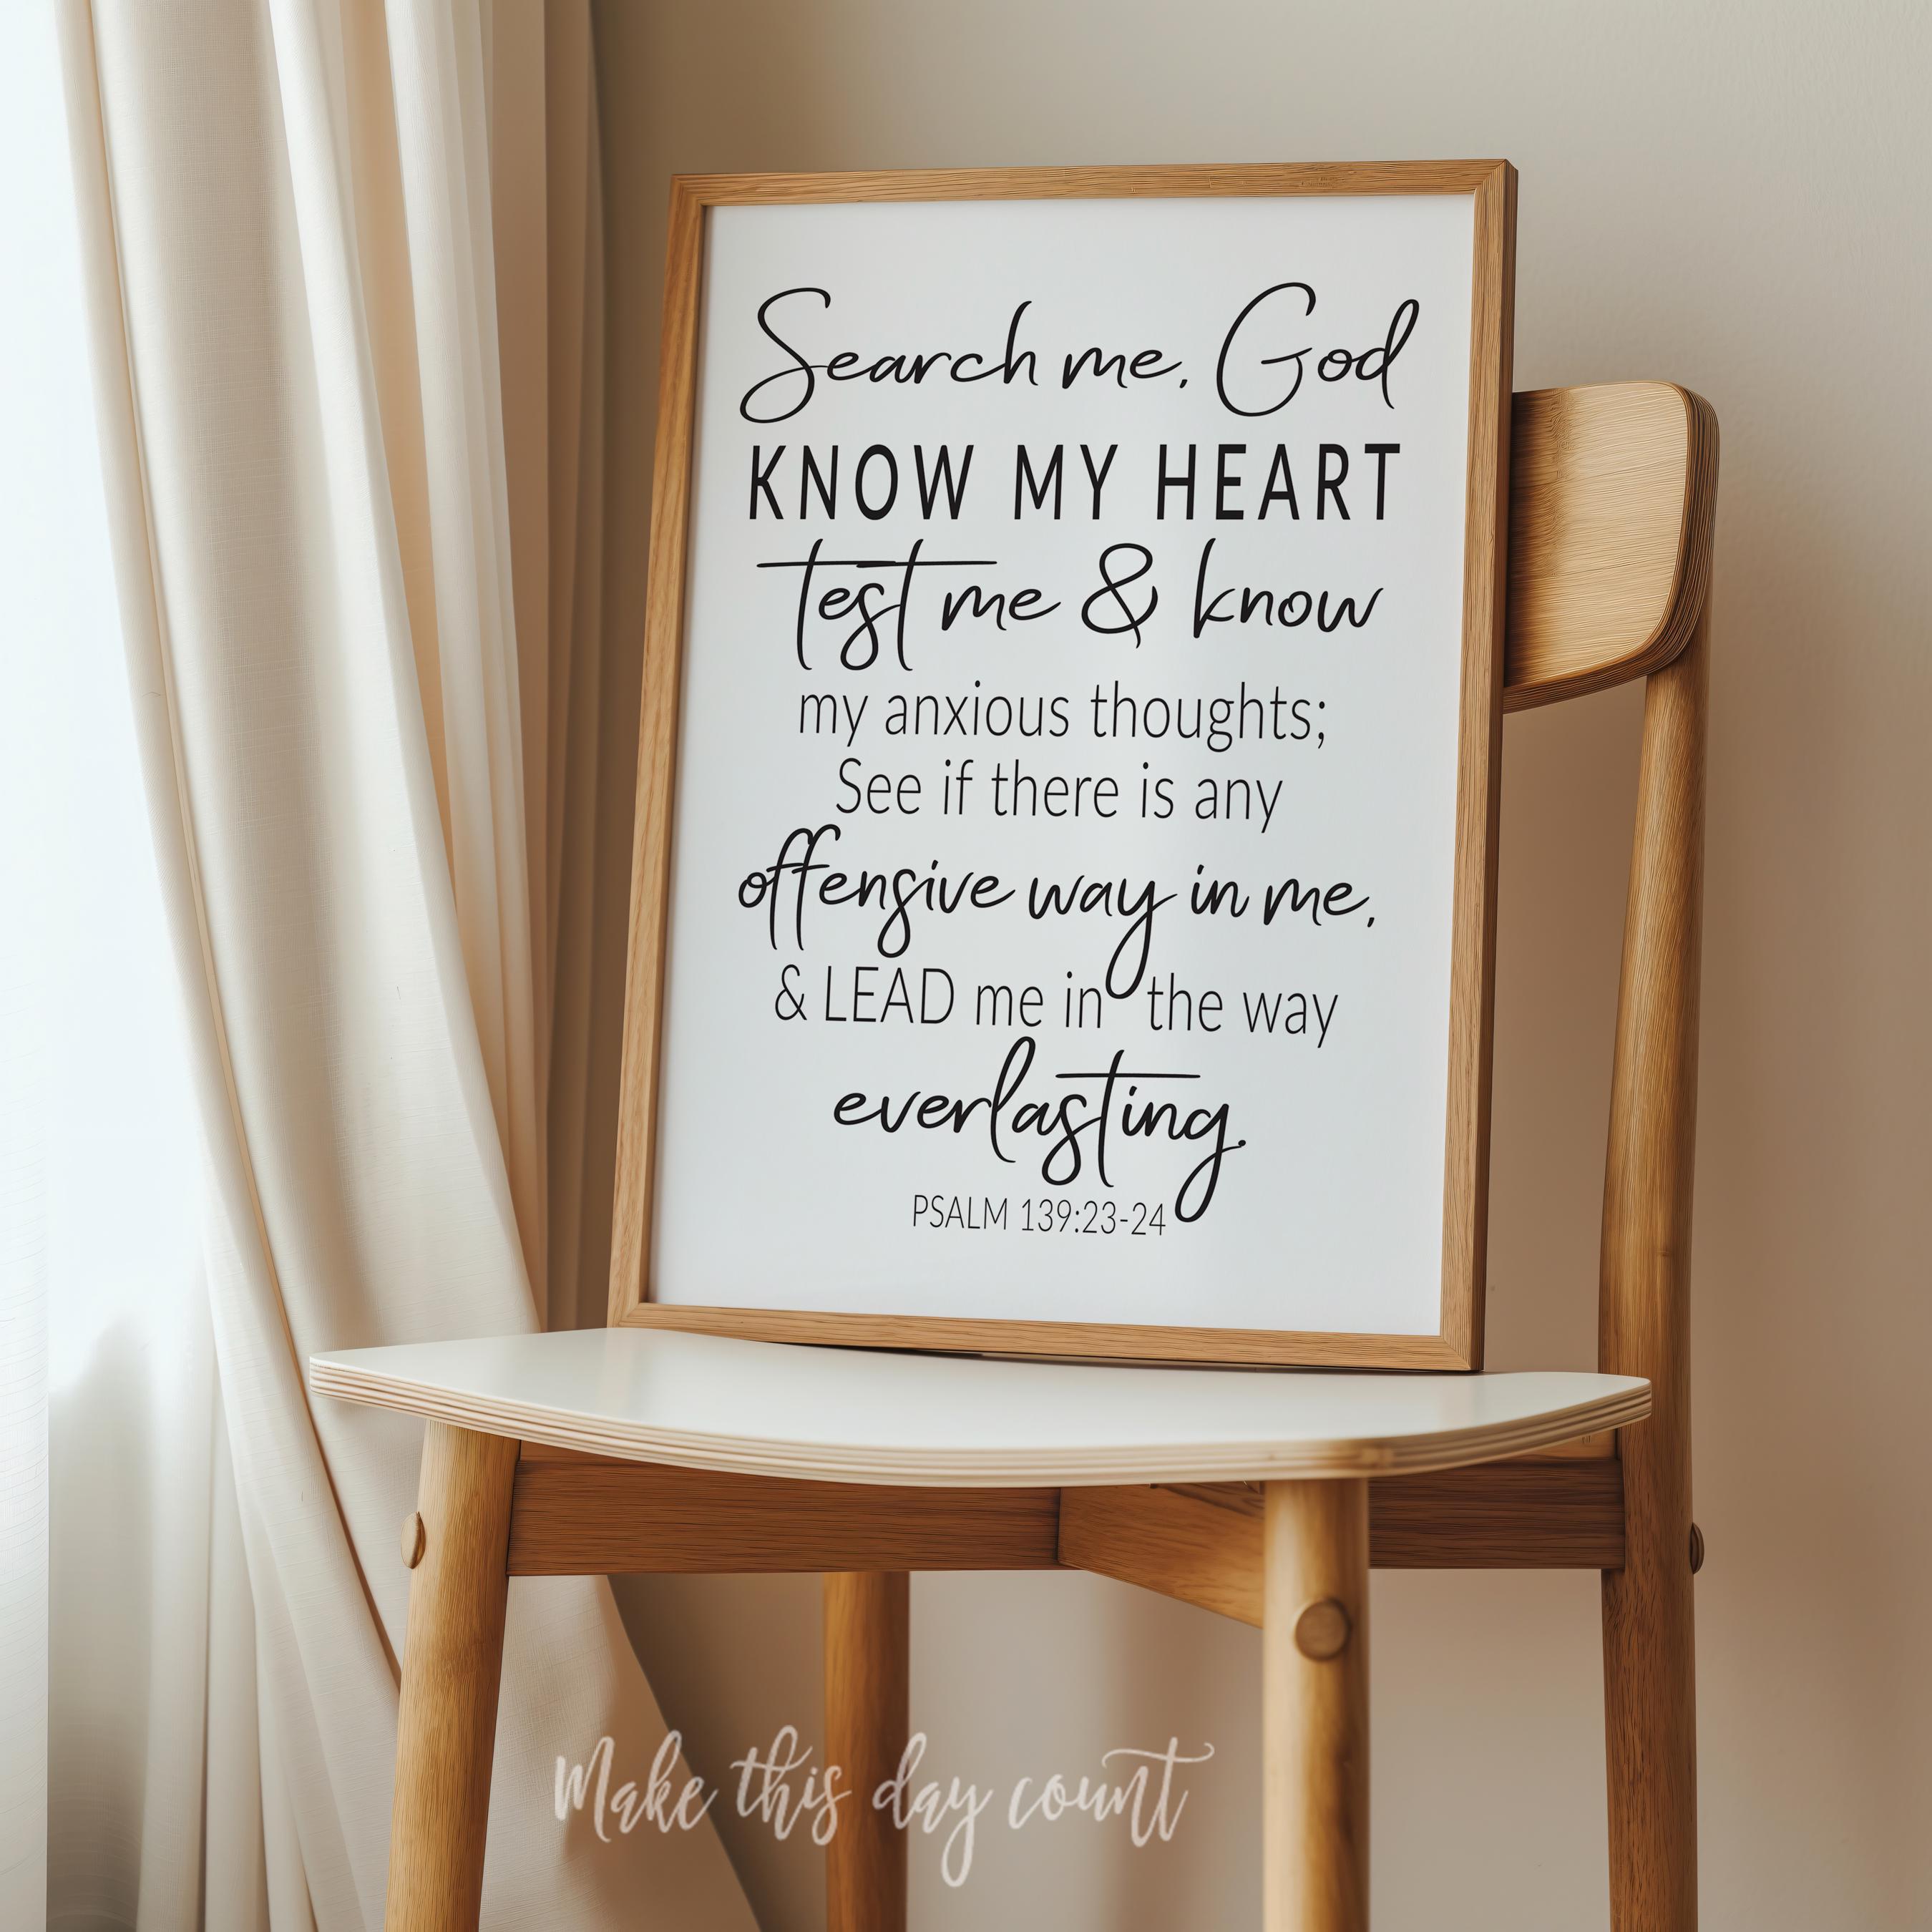 Search me, God
KNOW MY HEART
test me & know
my anxious thoughts;
See if there is any
offensive way in me,
& LEAD me in the way
everlasting.
PSALM 139:23-24
Make this day count